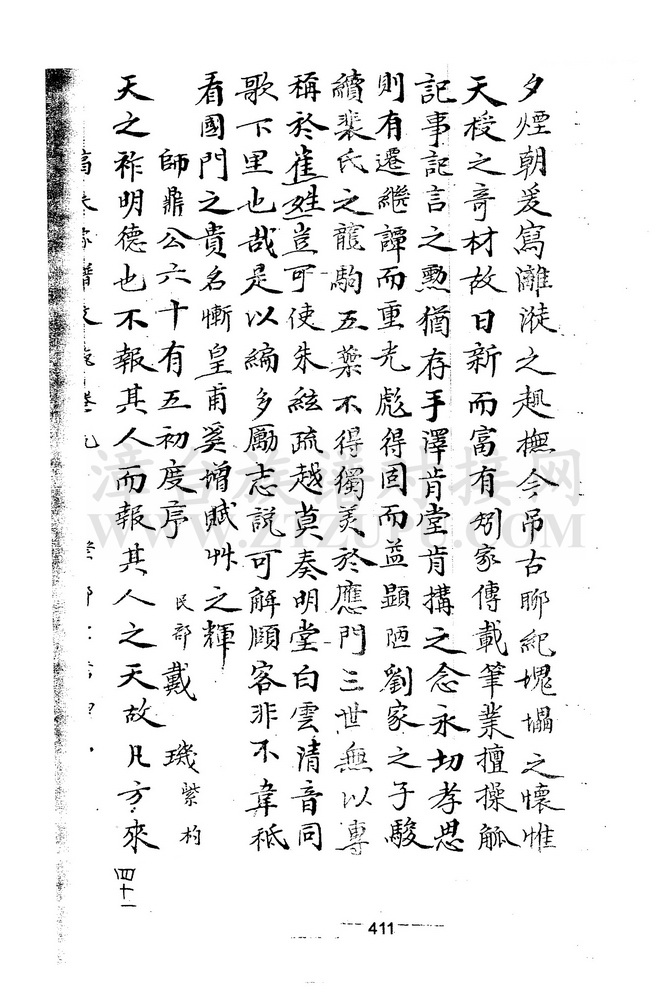 夕煙朝爰寫灕漇之趣撫今吊古聊紀塊壘之懷惟
天授之奇材故日新而富有矧家傳載筆業擅操觚
記事記言之勲猶存手澤肯堂肯搆之念永切孝思
則有遷繼譚而重光彪得固而益顯陋劉家之子駿
續裴氏之龍駒五葉不得獨美於應門三世無以專
稱於崔姓豈可使朱絃疏越莫奏明堂白雲清音同
歌下里也哉是以編多勵志說可解頤客非不韋秪
看國門之貴名慚皇甫奚增賦艸之輝
師鼎公六十有五初度序 民部戴 璣紫枃
天之祚明德也不報其人而報其人之天故凡方來
譜 卷九
四十一
411
漳台族谱对接网
WWW.ZTZUPU.COM